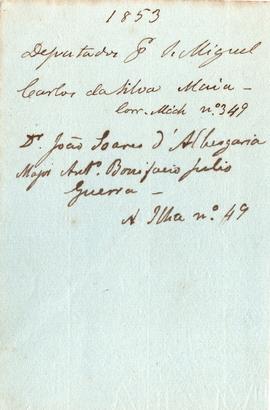 1853
Deputados p S. Miguel
Carlos da Silva Maia –
Corr. Mich nº 349
Dr. João Soares d'Albergaria
Major Antº. Bonifacio Julio
Guerra –
A Ilha nº 49